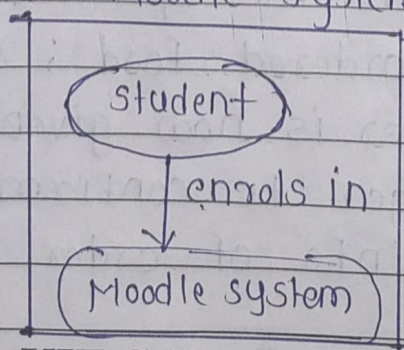 student
enrols in
Moodle system